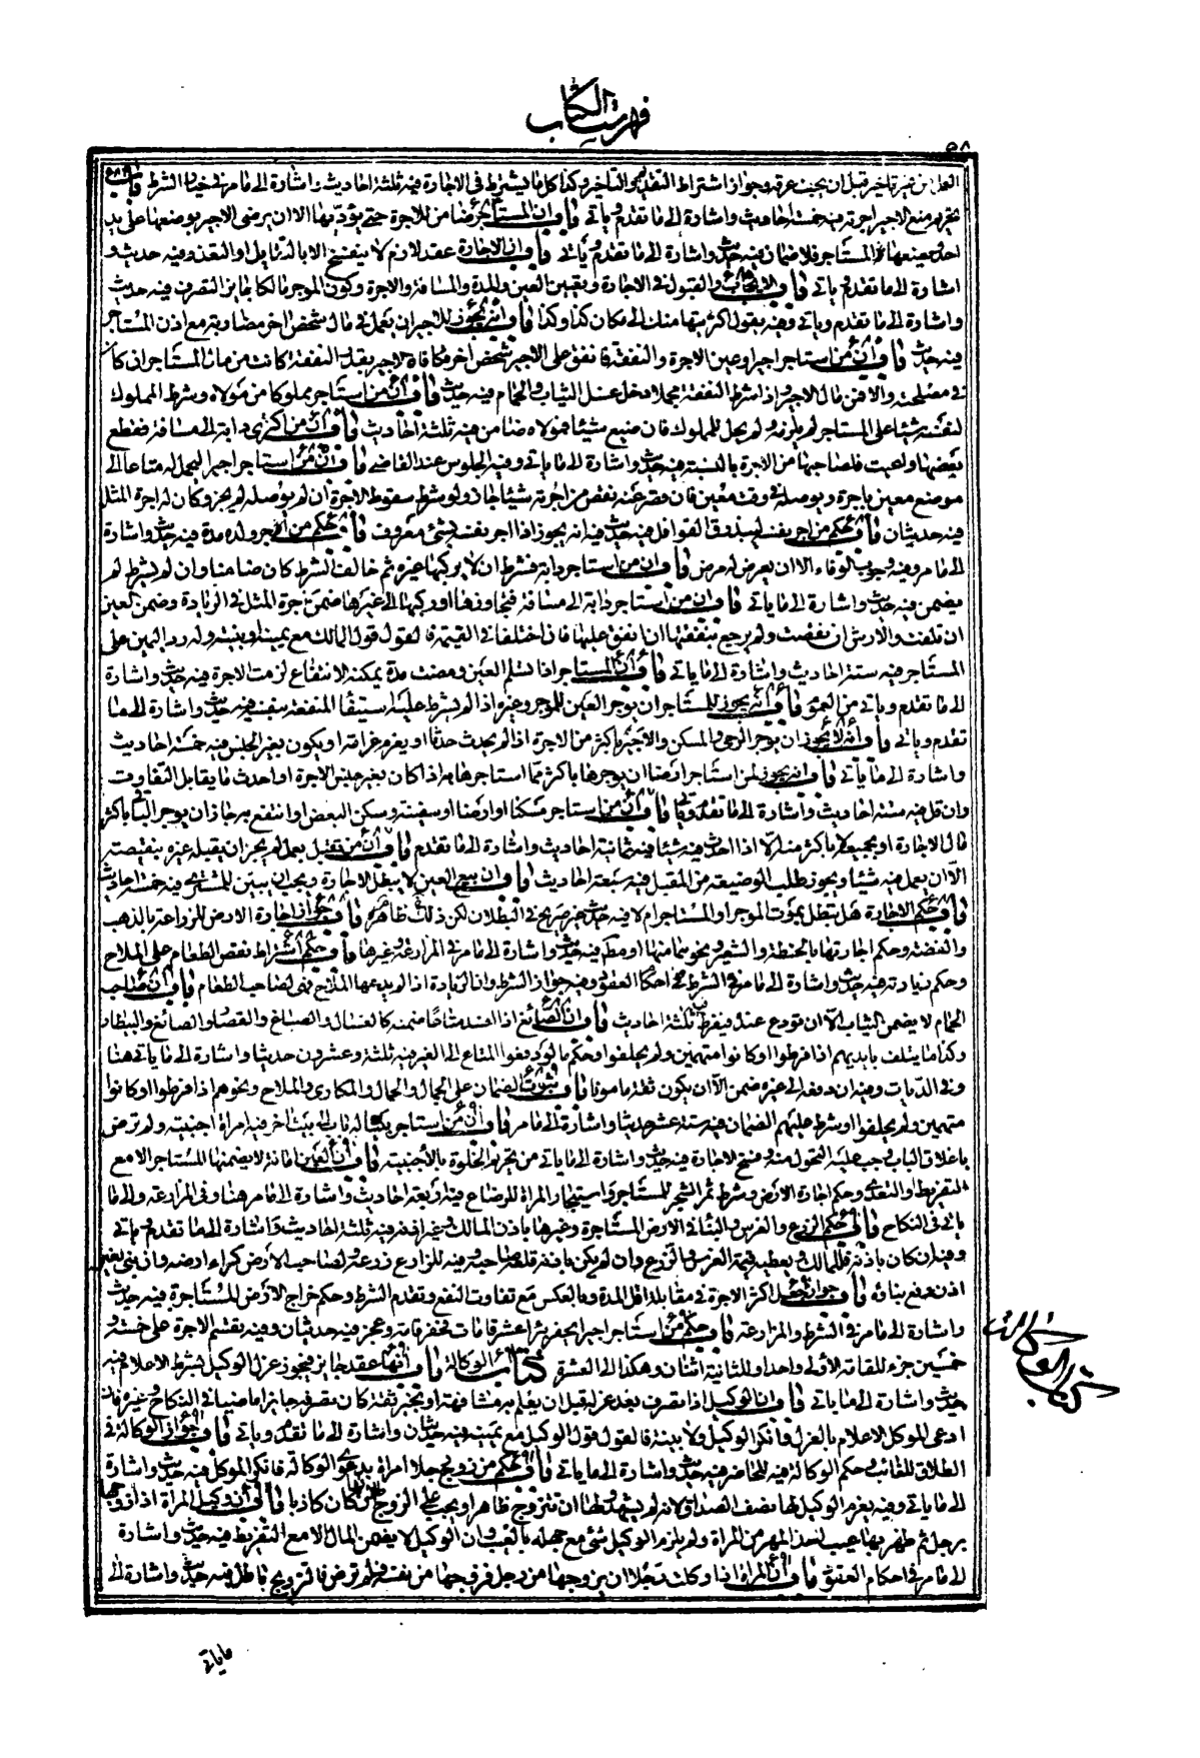 فهرست الكتاب
٥٨
العمل من غير تأخير قبل ان يجف عرقه وجواز اشتراط التقديم والتأخير وكذا كل ما يشترط في الاجارة فيه ثلثة احاديث واشارة الى ما مر في خيار الشرط باب
تحريم منع الاجير اجرته فيه خمسة احاديث واشارة الى ما تقدم وياتي باب ان المستأجر ضامن للاجرة حتى يؤديها الا ان يرضى الاجير بوضعها على يد
احد فيضعها المستاجر فلا ضمان فيه حديث واشارة الى ما تقدم وياتي باب ان الاجارة عقد لازم لا ينفسخ الا بالتقايل او التعذر وفيه حديث و
اشارة الى ما تقدم وياتي باب الايجاب والقبول في الاجارة وتعيين العين والمدة والمسافة والاجرة وكون الموجر مالكا جايز التصرف فيه حديث
واشارة الى ما تقدم وياتي وفيه يقول اكتريتها منك الى مكان كذا وكذا باب انه يجوز للاجير ان يعمل في مال شخص اخر مضاربة مع اذن المستاجر
فيه حديث باب ان من استاجر اجيرا وعين الاجرة والنفقة فانفق على الاجير شخص اخر فكافاه الاجير بقدر النفقة كانت من مال المستاجر ان كان
في مصلحته والا فمن مال الاجير واذا شرط النفقة مجملا دخل غسل الثياب والحمام فيه حديث باب ان من استاجر مملوكا من مولاه وشرط المملوك
لنفسه شيئا على المستاجر لم يلزمه ولم يحل للمملوك فان ضيع شيئا فمولاه ضامن فيه ثلثة احاديث باب ان من اكترى دابة الى مسافة فقطع
بعضها واعيت فلصاحبها من الاجرة بالنسبة فيه حديث واشارة الى ما ياتي وفيه الجلوس عند القاضي باب ان من استاجر اجيرا ليحمل له متاعا الى
موضع معين باجرة ويوصله في وقت معين فان قصر عنه نقص من اجرته شيئا جاز ولو شرط سقوط الاجرة ان لم يوصله لم يجز وكان له اجرة المثل
فيه حديثان باب حكم من اجر نفسه ليبذرق القوافل فيه حديث فيه انه يجوز اذا اجر نفسه بشئ معروف باب حكم من اجر ولده مدة فيه حديث واشارة
الى ما مر وفيه وجوب الوفاء الا ان يعرض له مرض باب ان من استاجر دابة فشرط ان لا يركبها غيره ثم خالف الشرط كان ضامنا وان لم يشرط لم
يضمن فيه حديث واشارة الى ما ياتي باب ان من استاجر دابة الى مسافة فتجاوزها او ركبها الى غيرها ضمن اجرة المثل في الزيادة وضمن العين
ان تلفت والارش ان نقصت ولم يرجع بنفقتها ان انفق عليها فاذا اختلفا في القيمة فالقول قول المالك مع يمينه او بينته وله رد اليمين على
المستاجر فيه ستة احاديث واشارة الى ما ياتي باب ان المستاجر اذا تسلم العين ومضت مدة يمكنه الانتفاع لزمت الاجرة فيه حديث واشارة
الى ما تقدم وياتي من العموم باب انه يجوز للمستاجر ان يوجر العين للموجر وغيره اذا لم يشرط عليه استيفاء المنفعة بنفسه فيه حديث واشارة الى ما
تقدم وياتي باب انه لا يجوز ان يوجر الرحى والمسكن والاجير باكثر من الاجرة اذا لم يحدث حدثا او يغرم غرامة او يكون بغير الجنس فيه خمسة احاديث
واشارة الى ما ياتي باب انه يجوز لمن استاجر ارضا ان يوجرها باكثر مما استاجرها به اذا كان بغير جنس الاجرة او احدث ما يقابل التفاوت
وان قل فيه ستة احاديث واشارة الى ما تقدم وياتي باب ان من استاجر مسكنا او ارضا او سفينة وسكن البعض او انتفع به جاز ان يوجر الباقي باكثر
مال الاجارة او بجميعه لا باكثر منه الا اذا احدث فيه شيئا فيه ثمانية احاديث واشارة الى ما تقدم باب ان من تقبل بعمل لم يجز ان يقبله غيره بنقيصة
الا ان يعمل فيه شيئا ويجوز طلب الوضيعة من المقبل فيه سبعة احاديث باب ان بيع العين لا يبطل الاجارة ويجب ان يبين للمشتري فيه خمسة احاديث
باب حكم الاجارة هل تبطل بموت الموجر او المستاجر ام لا فيه حديث غير صريح في البطلان لكن ذلك ظاهره باب جواز اجارة الارض للزراعة بالذهب
والفضة وحكم اجارتها بالحنطة والشعير ونحوهما منها او مطلقا فيه حديث واشارة الى ما مر في المزارعة وغيرها باب حكم اشتراط نقص الطعام على الملاح
وحكم زيادته فيه حديث واشارة الى ما مر في الشرط في احكام العقود وفيه جواز الشرط وان الزيادة اذا لم يدعها الملاح فهي لصاحب الطعام باب ان صاحب
الحمام لا يضمن الثياب الا ان تودع عنده فيفرط فيه ثلثة احاديث باب ان الصائغ اذا افسد متاعا ضمنه كالغسال والصباغ والقصار والصائغ والبيطار
وكذا ما يتلف بايديهم اذا فرطوا او كانوا متهمين ولم يحلفوا وحكم ما لو دفعوا المتاع الى الغير فيه ثلثة وعشرون حديثا واشارة الى ما ياتي هنا
وفي الديات وفيه ان دفعه الى غيره ضمن الا ان يكون ثقة مامونا باب ثبوت الضمان على الجمال والحمال والمكاري والملاح ونحوهم اذا فرطوا او كانوا
متهمين ولم يحلفوا او شرط عليهم الضمان فيه ستة عشر حديثا واشارة الى ما مر باب ان من استاجر بيتا له باب الى بيت اخر فيه امراة اجنبية ولم ترض
باغلاق الباب وجب عليه التحول منه وفسخ الاجارة فيه حديث واشارة الى ما ياتي من تحريم الخلوة بالاجنبية باب ان العين امانة لا يضمنها المستاجر الا مع
التفريط والتعدي وحكم اجارة الارض وشرط ثمر الشجر للمستاجر واستيجار المراة للرضاع فيه اربعة احاديث واشارة الى ما مر هنا وفي المزارعة والى ما
ياتي في النكاح باب حكم الزرع والغرس والبناء في الارض المستاجرة وغيرها باذن المالك وبغير اذنه فيه ثلثة احاديث واشارة الى ما تقدم وياتي
وفيه ان كان باذنه فللمالك ان يعطيه قيمة الغرس والزرع وان لم يكن باذنه قلعه صاحبه وفيه للزارع زرعه ولصاحب الارض كراء ارضه وان بنى بغير
اذن رفع بناؤه باب جواز جعل اكثر الاجرة في مقابلة اقل المدة وبالعكس مع تفاوت النفع وتقدم الشرط وحكم خراج الارض المستاجرة فيه حديث
واشارة الى ما مر في الشرط والمزارعة باب حكم من استاجر اجيرا ليحفر بئرا عشر قامات فحفر قامة وعجز فيه حديثان وفيه يقسم الاجرة على خمسة و
خمسين جزء للقامة الأولى واحد وللثانية اثنان وهكذا الى العشرة كتاب الوكالة باب انها عقد جايز فيجوز عزل الوكيل بشرط الاعلام فيه
حديث واشارة الى ما ياتي باب ان الوكيل اذا تصرف بعد عزله قبل ان يعلم به مشافهة او بخبر ثقة كان تصرفه جايزا ماضيا في النكاح وغيره فان
ادعى الموكل الاعلام بالعزل فانكر الوكيل ولا بينة فالقول قول الوكيل مع يمينه فيه حديثان واشارة الى ما تقدم وياتي باب جواز الوكالة في
الطلاق للغائب وحكم الوكالة فيه للحاضر فيه حديث واشارة الى ما ياتي باب حكم من زوج رجلا امراة بدعوى الوكالة فانكر الموكل فيه حديث واشارة
الى ما ياتي وفيه يغرم الوكيل لها نصف الصداق لانه لم يشهد ولها ان تتزوج ظاهرا ويجب على الزوج طلاقها ان كان كاذبا باب انه وكيل المراة اذا زوجها
برجل ثم ظهر بها عيب اخذ المهر من المراة ولم يلزم الوكيل شئ مع جهله بالعيب وان الوكيل لا يضمن المال الا مع التفريط فيه حديث واشارة
الى ما مر في احكام العقود باب ان المراة اذا وكلت رجلا ان يزوجها من رجل فزوجها من نفسه فلم ترض فالتزويج باطل فيه حديث واشارة الى
كتاب الوكالة
ما ياتي